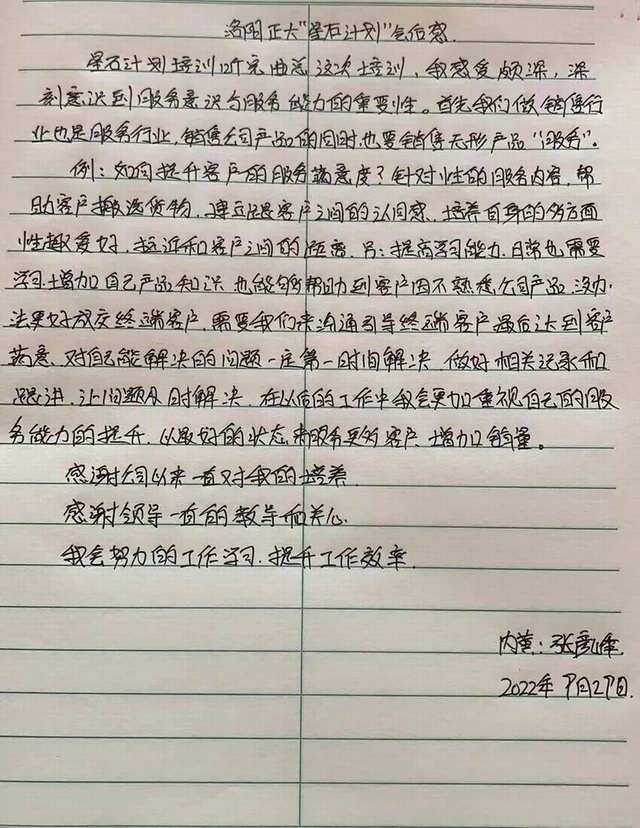 洛阳正大"星石计划"会后感.
星石计划培训听完曲总这次培训,我感受颇深,深
刻意识到服务意识与服务能力的重要性。首先我们做销售行
业也是服务行业,销售公司产品的同时也要销售无形产品"服务"。
例:如何提升客户的服务满意度?针对性的服务内容,帮
助客户搬运货物,建立起客户之间的认同感.培养自身的多方面
性趣爱好,拉近和客户之间的距离.另:提高学习能力.日常也需要
学习.增加自己产品知识.也能够帮助到客户因不熟悉公司产品,没办
法更好成交终端客户.需要我们来沟通引导终端客户最后达到客户
满意.对自己能解决的问题一定第一时间解决.做好相关记录和
跟进.让问题及时解决.在以后的工作中我会更加重视自己的服
务能力的提升.以最好的状态来服务更多客户.增加销量。
感谢公司以来一直对我的培养.
感谢领导一直的教导和关心.
我会努力的工作学习.提升工作效率.
内黄:张
2022年 月2日.